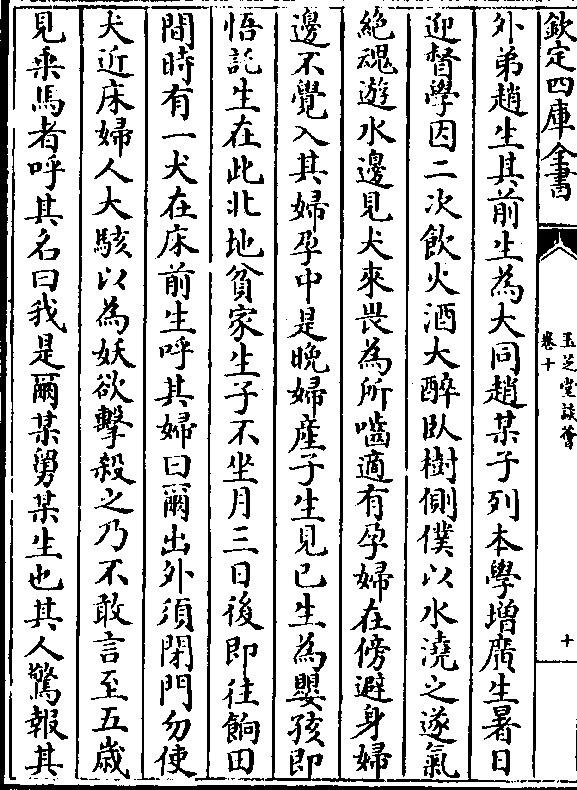 欽定四庫全書
玉芝堂談薈
卷十
十
外弟趙生其前生為大同趙某子列本學增廣生暑日
迎督學因二次飲火酒大醉臥樹側僕以水澆之遂氣
絶魂遊水邊見犬來畏為所噬適有孕婦在傍避身婦
邊不覺入其婦孕中是晩婦産子生見已生為嬰孩即
悟託生在此北地貧家生子不坐月三日後即往餉田
間時有一犬在床前生呼其婦曰爾出外須閉門勿使
犬近床婦人大駭以為妖欲擊殺之乃不敢言至五歳
見乘馬者呼其名曰我是爾某舅某生也其人驚報其